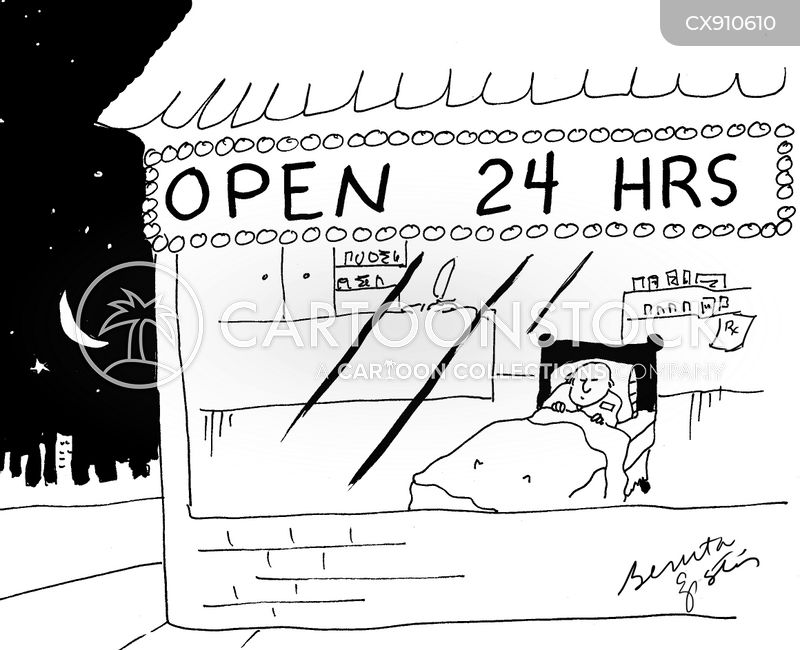 CX910610
OPEN 24 HRS
Rx
CARTOONSTOCK
A CARTOON COLLECTIONS COMPANY
Benita
Epstein